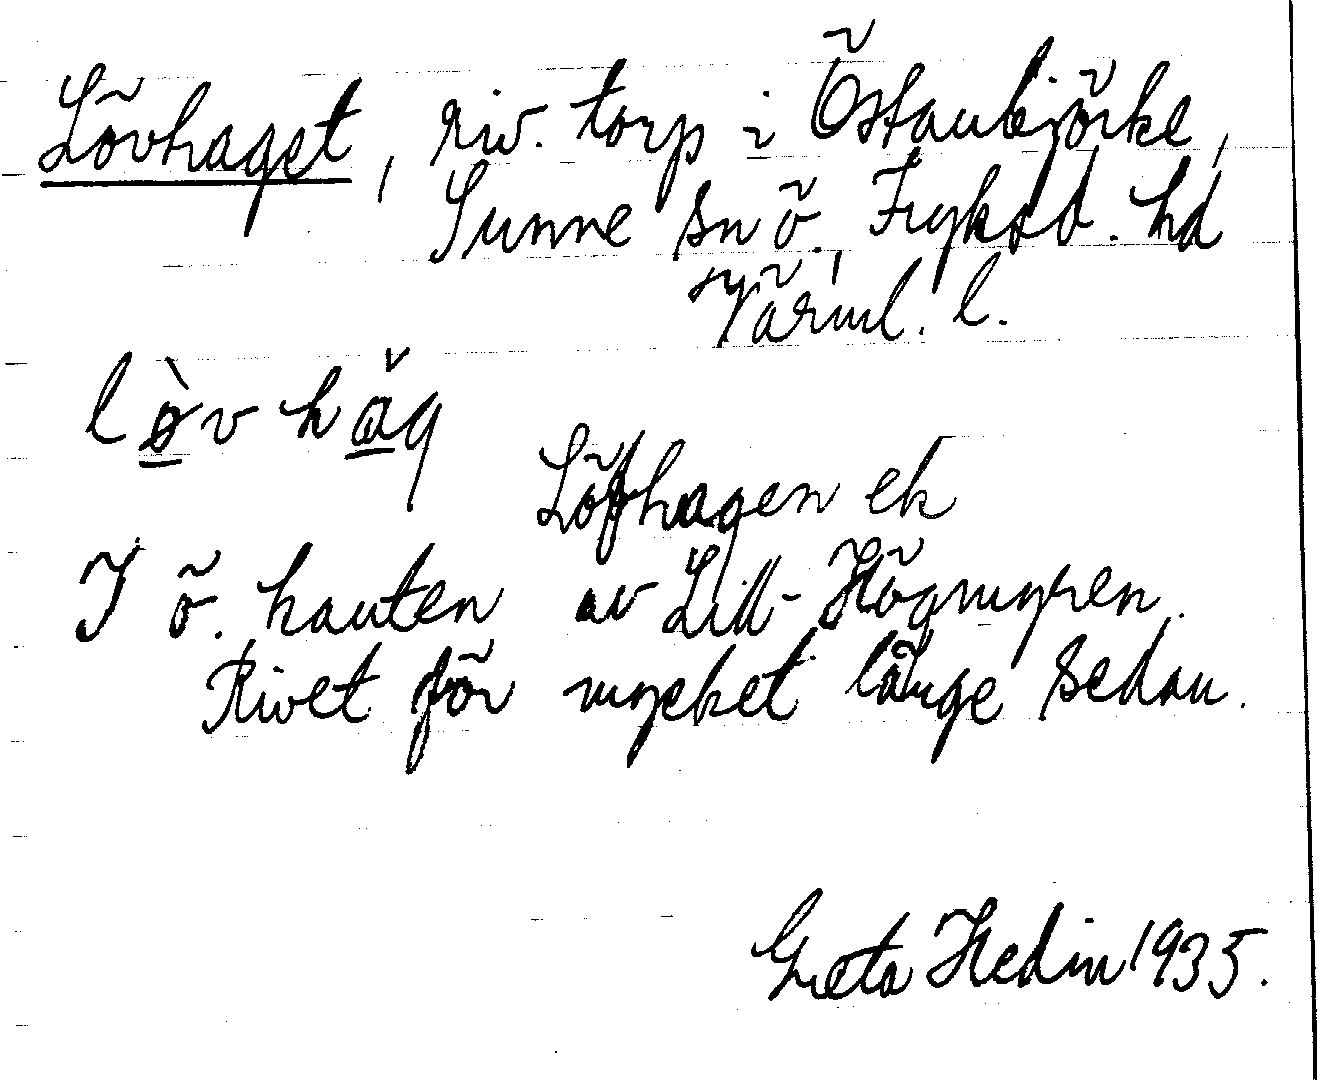 Lövhaget, riv. torp i Östanbjörke,
Sunne sn ö. Fryksd. hd
Värml. l.
lø̀v hǎg
Löfhagen ek
I ö. kanten av Lill-Högmyren.
Rivet för mycket länge sedan.
Greta Hedin 1935.